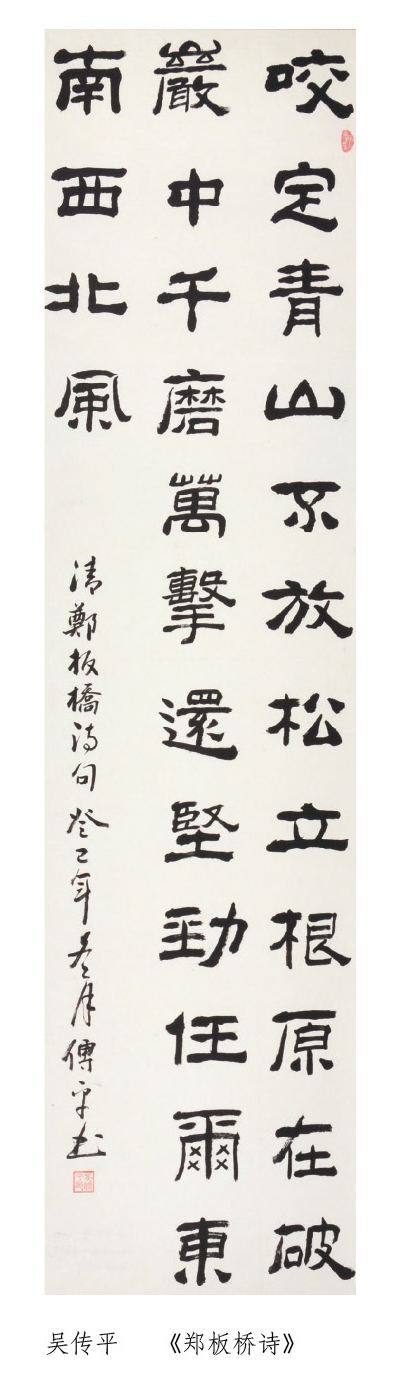 咬定青山不放松立根原在破
巖中千磨萬擊還堅勁任爾東
南西北風
清鄭板橋詩句癸巳年月傳平书
吴传平 《郑板桥诗》